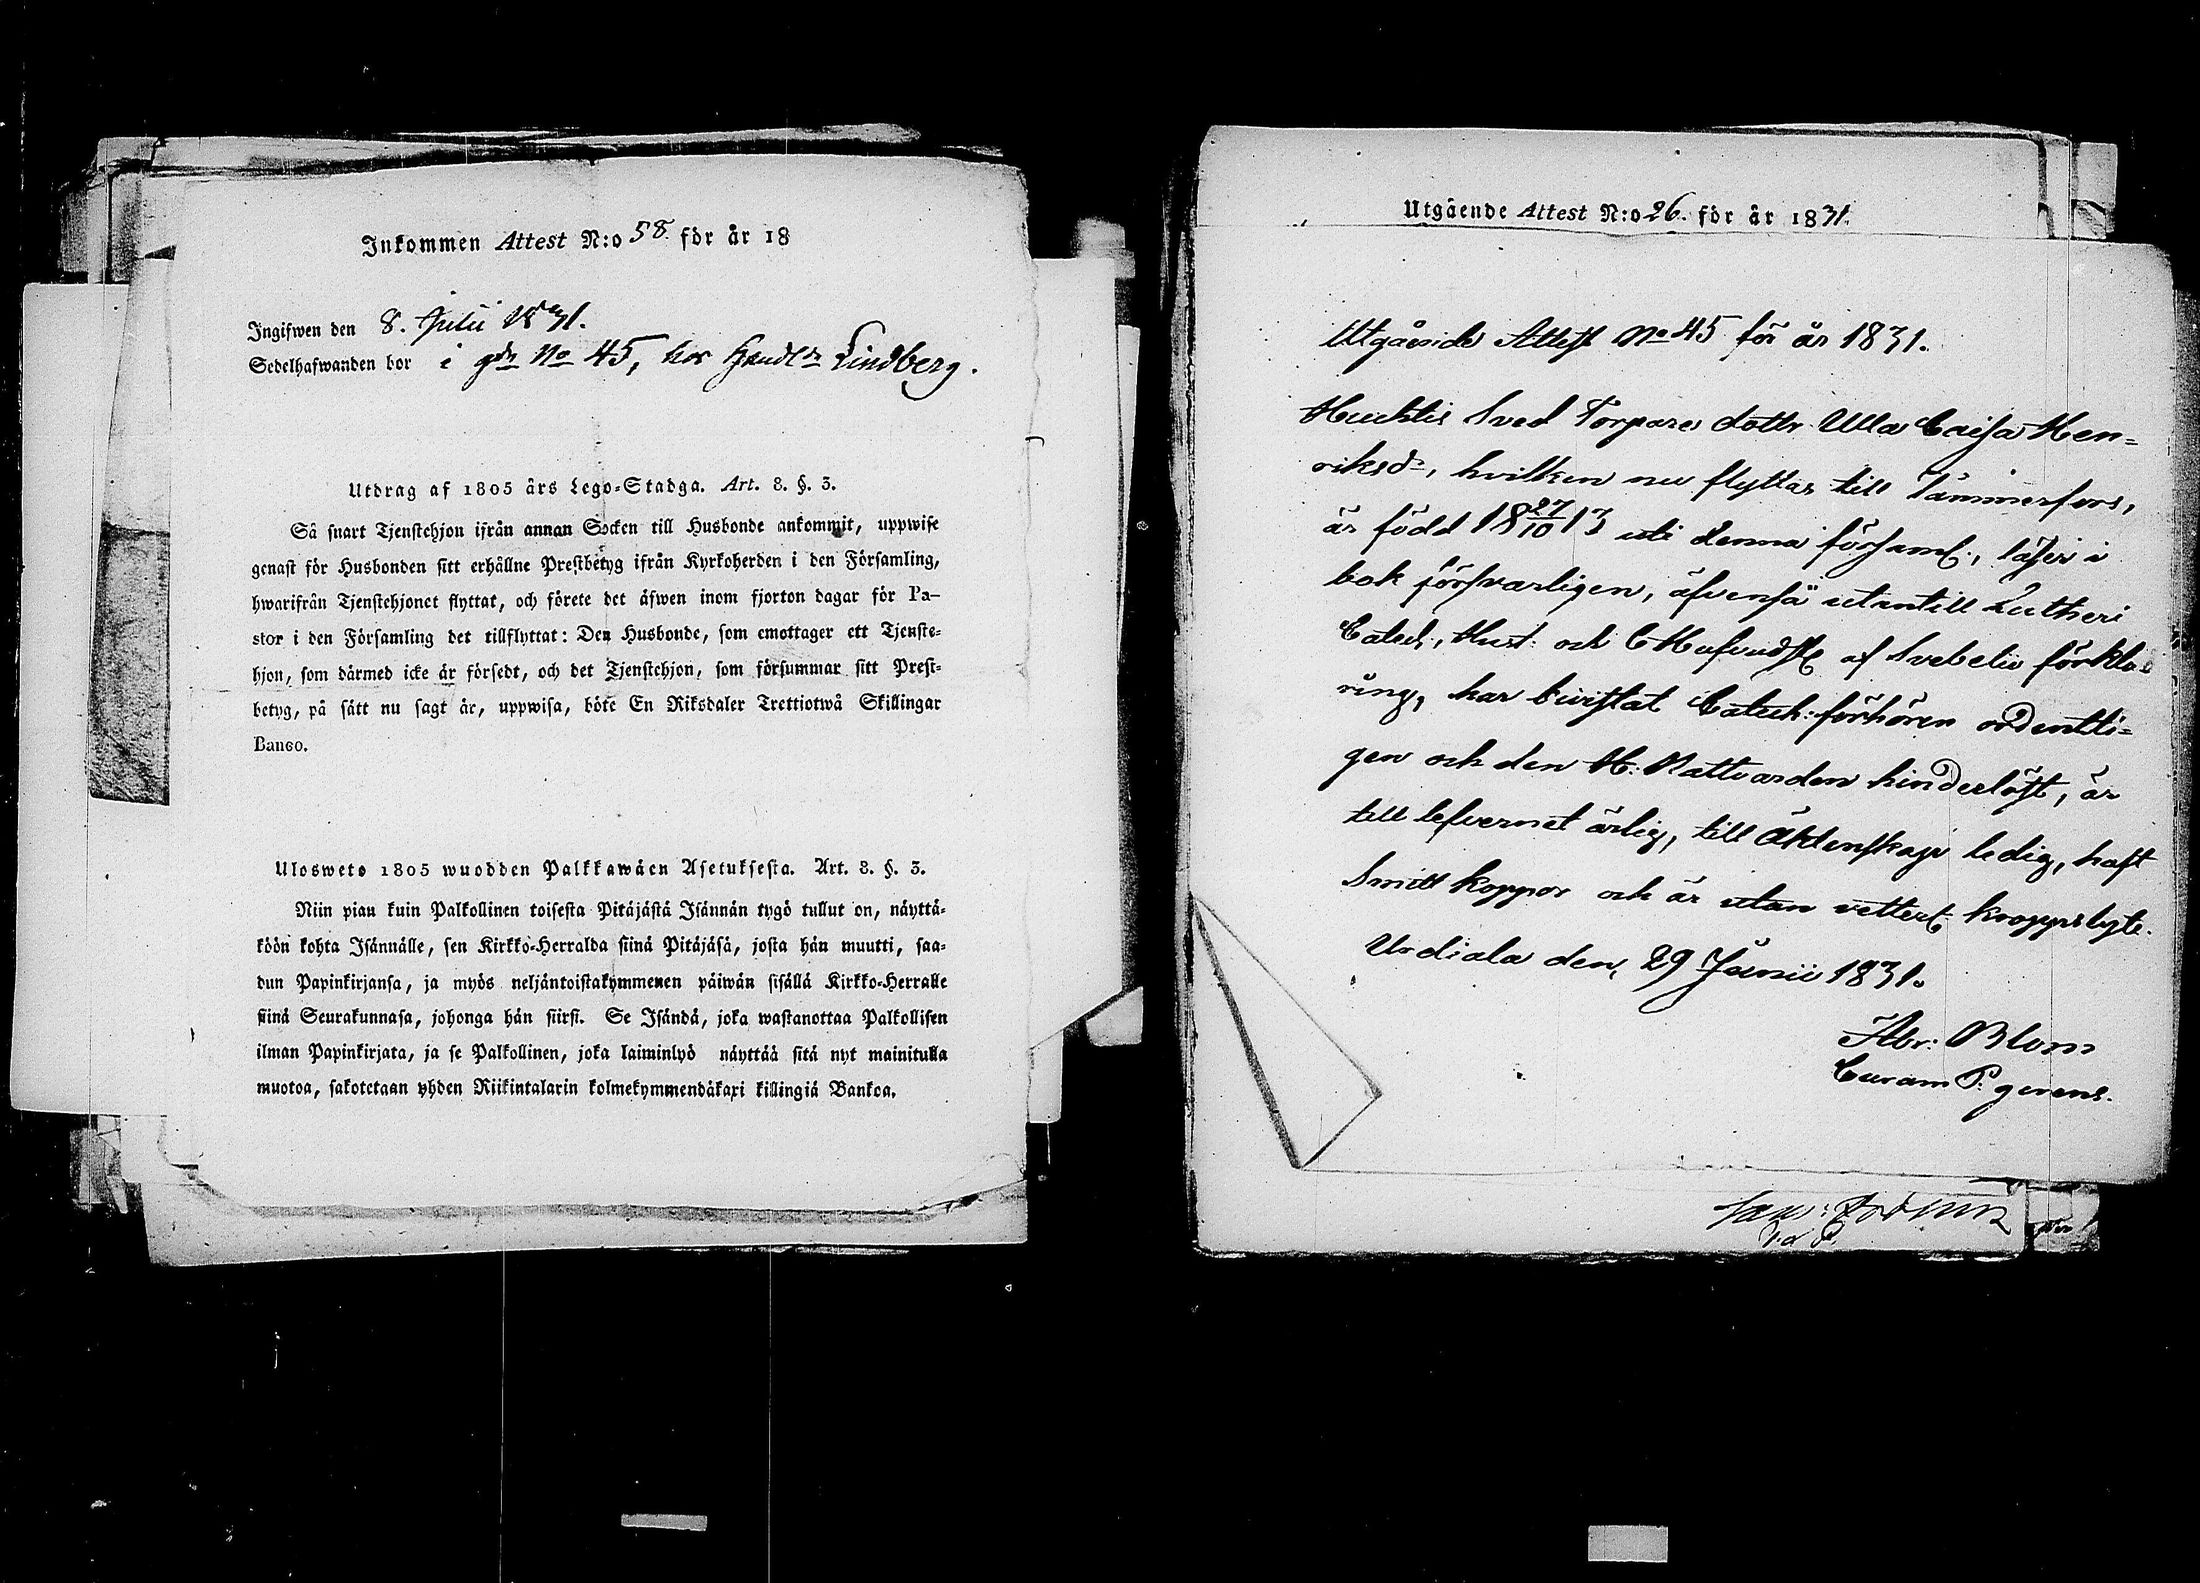 Inkommen Attest N:o 58. för år 18
Ingifwen den 8. Julii 1831.
Sedelhafwanden bor i gdn No 45, hos Handln Lindberg.
Utdrag af 1805 års Lego-Stadga. Art. 8. §. 3.
Så snart Tjenstehjon ifrån annan Socken till Husbonde ankommit, uppwise
genast för Husbonden sitt erhållne Prestbetyg ifrån Kyrkoherden i den Församling,
hwarifrån Tjenstehjonet flyttat, och förete det äfwen inom fjorton dagar för Pa-
stor i den Församling det tillflyttat: Den Husbonde, som emottager ett Tjenste-
hjon, som därmed icke är försedt, och det Tjenstehjon, som försummar sitt Prest-
betyg, på sätt nu sagt är, uppwisa, böte En Riksdaler Trettiotwå Skillingar
Banco.
Ulosweto 1805 wuodden Palkkawäen Asetuksesta. Art. 8. §. 3.
Niin pian kuin Palkollinen toisesta Pitäjästä Isännän tygö tullut on, näyttä-
köön kohta Isännälle, sen Kirkko-Herralda siinä Pitäjäsä, josta hän muutti, saa-
dun Papinkirjansa, ja myös neljäntoistakymmenen päiwän sisällä Kirkko-Herralle
siinä Seurakunnasa, johonga hän siirsi. Se Isändä, joka wastanottaa Palkollisen
ilman Papinkirjata, ja se Palkollinen, joka laiminlyö näyttää sitä nyt mainitulla
muotoa, sakotetaan yhden Riikintalarin kolmekymmendäkaxi killingiä Bankoa.
Utgående Attest N:o 26. för år 1831.
Utgående Attest No 45 för år 1831.
Huhtis Sved Torpare dottr. Ulla Caisa Hen=
riksdr, hvilken nu flyttar till Tammerfors,
är född 18 27/10 13 uti denna församl:, läser i
bok försvarligen, äfvenså utantill Lutheri
Catech:, Hust: och Hufvudst af Svebelii förkla=
ring, har bivistat Catech: förhören ordentli=
gen och den H: Nattvarden hinderlöst, är
till lefvernet ärlig, till Äktenskap ledig, haft
Smitt koppor och är utan vettert. kroppslyte.
Urdiala den, 29 Junii 1831.
Abr: Blom
Curam P. gerens.
V. d. P.